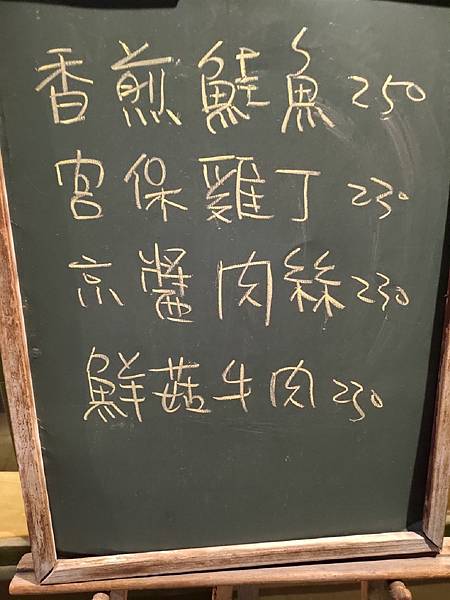 香煎鮭魚250
宮保雞丁230
京醬肉絲230
鮮菇牛肉230